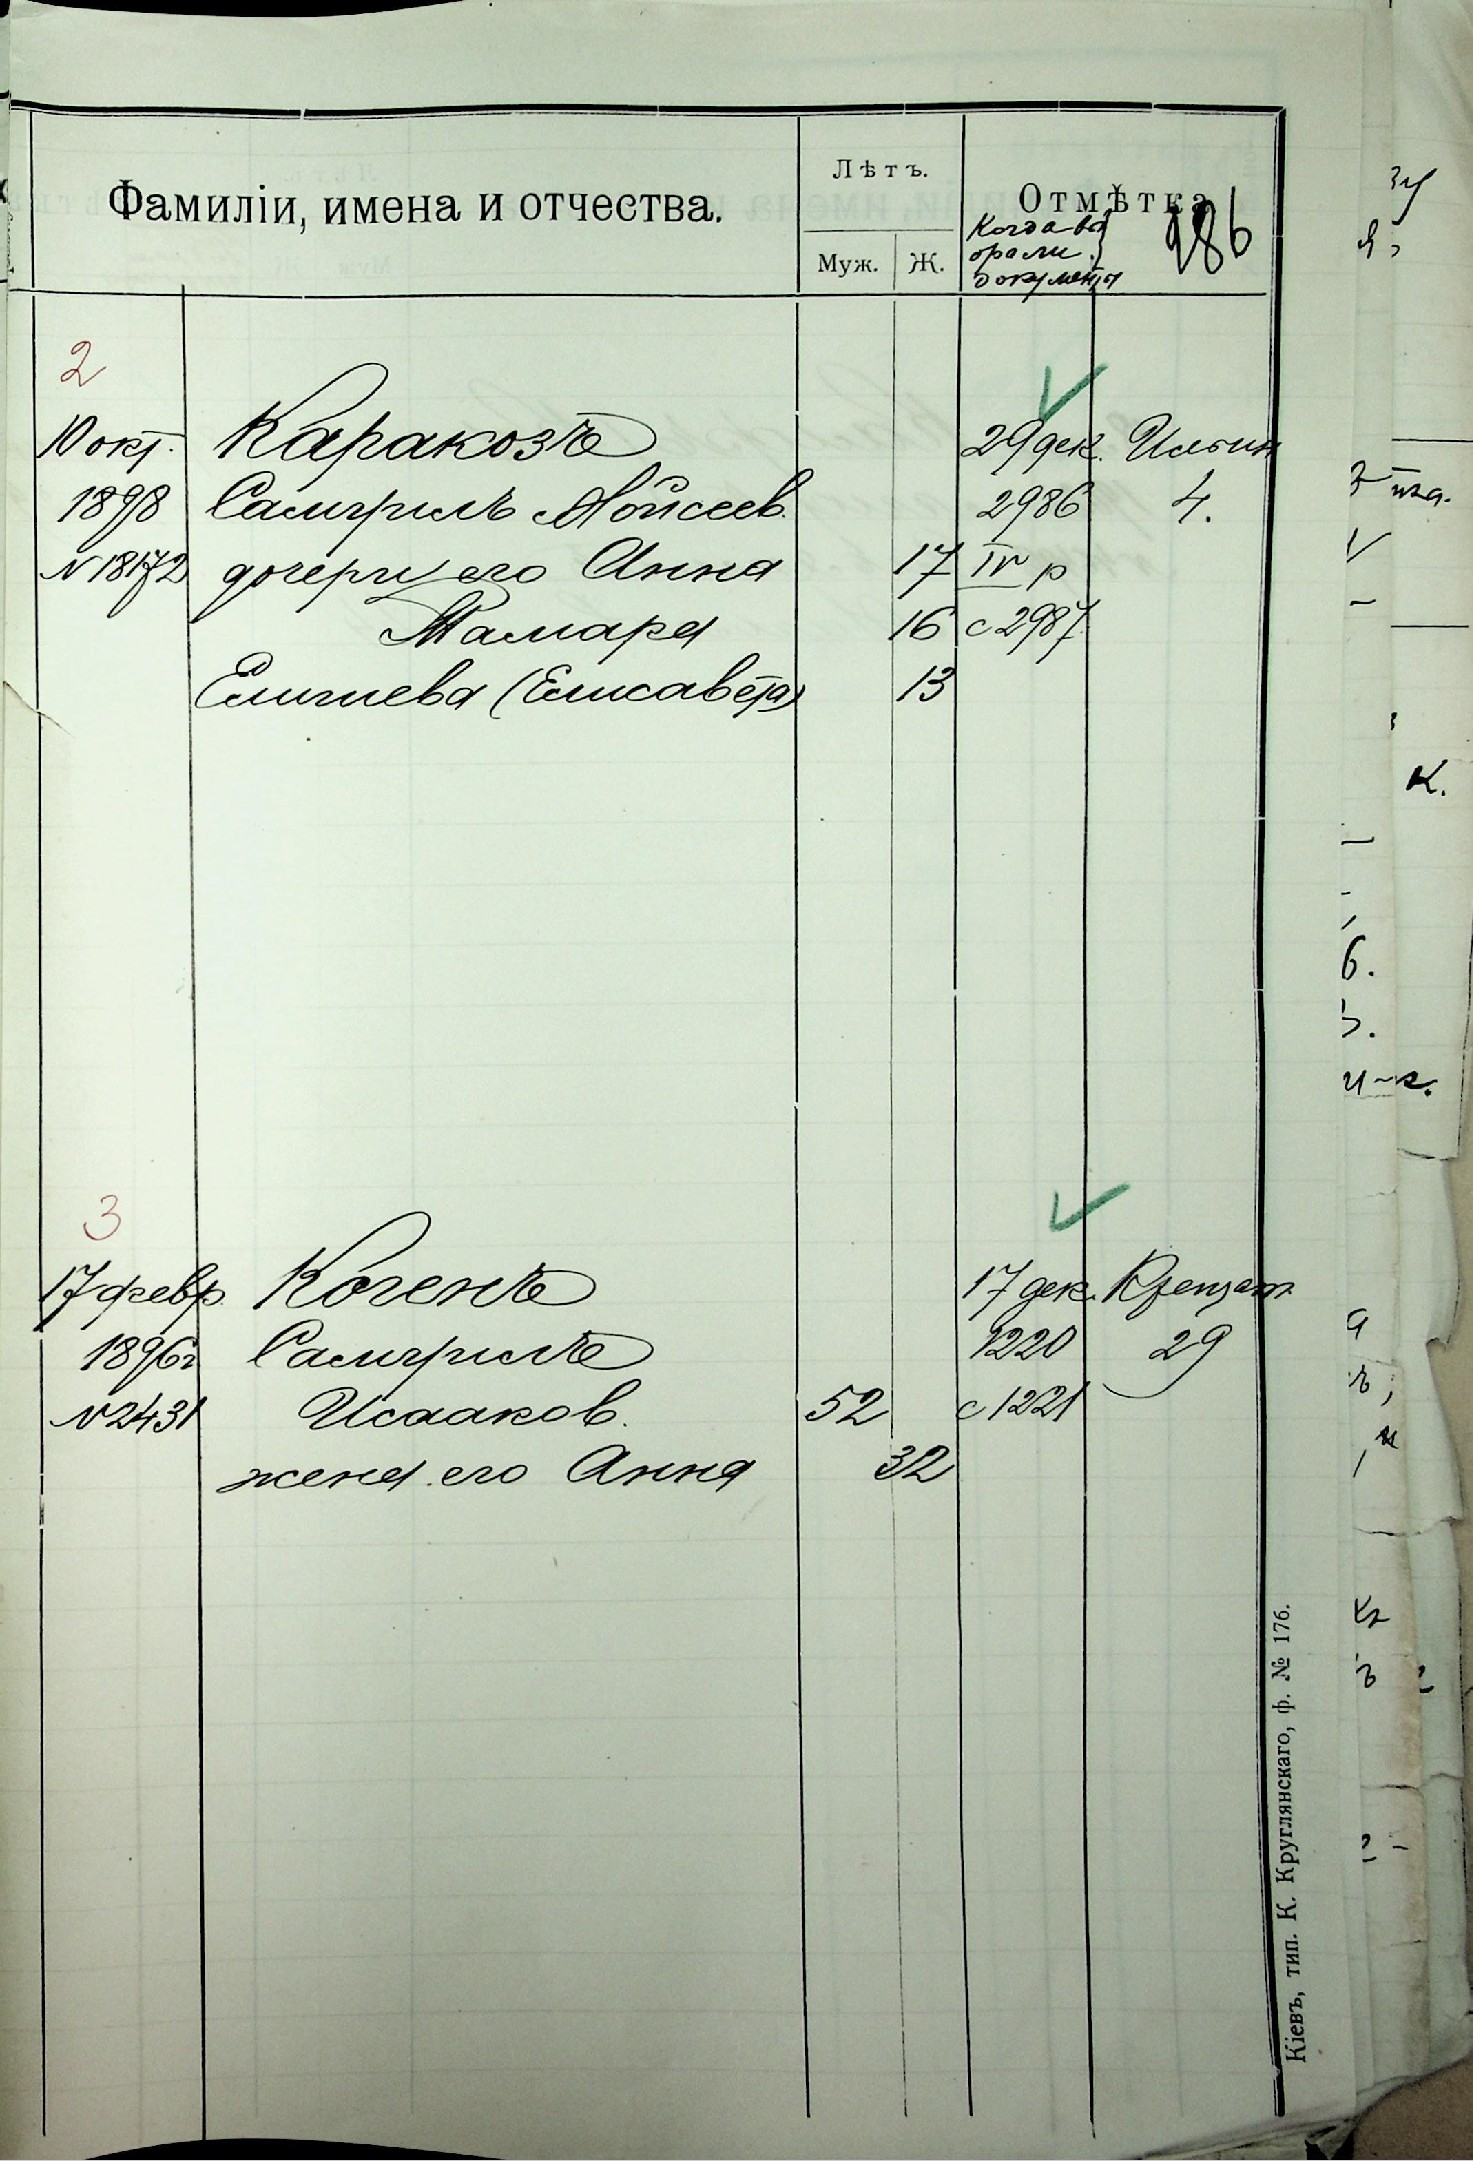 Фамиліи, имена и отчества.
Лѣтъ.
Муж.
Ж.
Отмѣтка
Когда вы
брали
документы
286
2
10 окт.
Каракозъ
29 дек.
Ильин
1898
Самуилъ Мойсеев.
2986
4.
№ 18172
дочери его Анна
17
IV р
Тамара
16
с 2987
(Елисавета)
13
3
17 февр.
Когенъ
17 дек.
Крещат.
1896 г
Самуилъ
1220
29
№ 2431
Исааков.
52
с 1221
жена его Анна
32
Кіевъ, тип. К. Круглянскаго, ф. № 176.